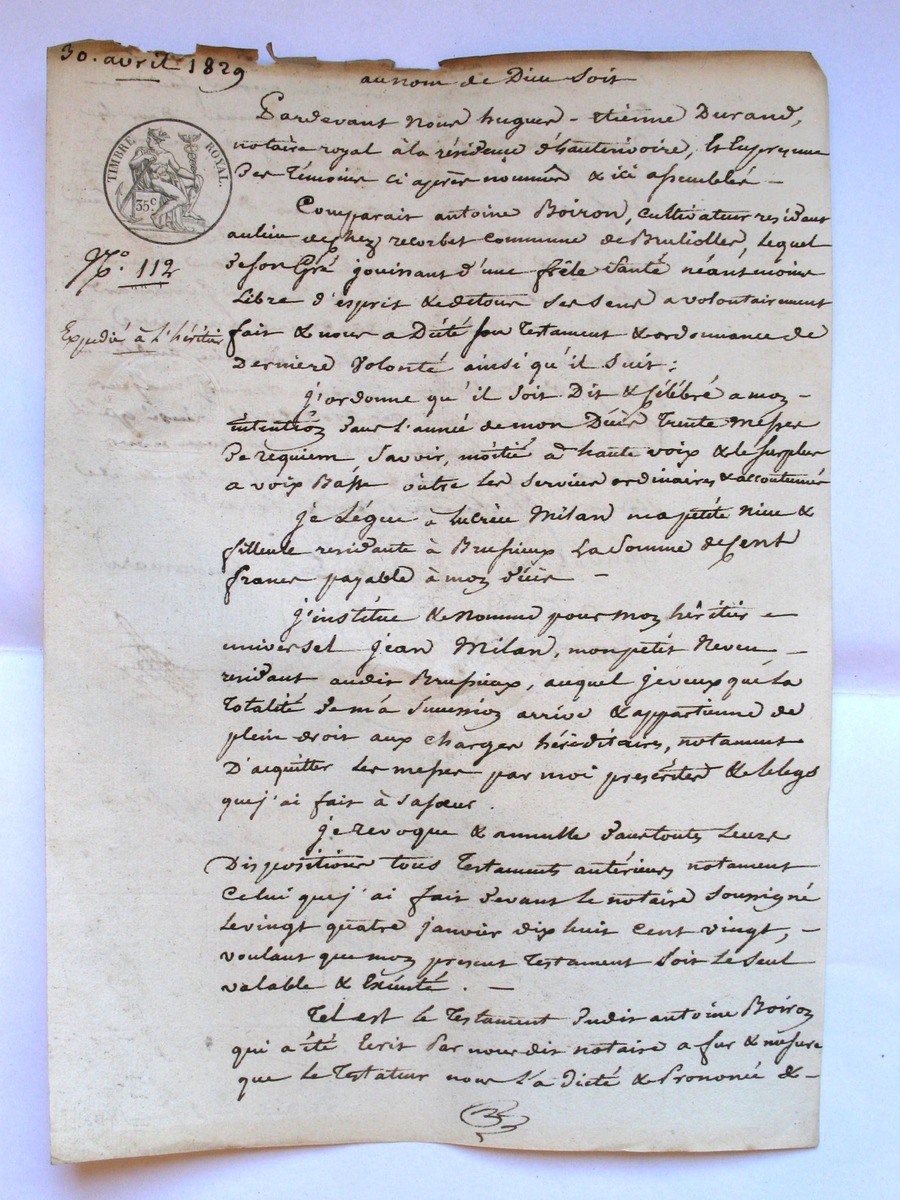 30. avril 1829
au nom de Dieu soit
TIMBRE ROYAL.
35c
N.° 112
Expedié à l'héritier
Pardevant Nous hugues-etienne Durand,
notaire royal à la résidence d'hauterivoire, & En presence
Des Témoins ci après nommés & ici assemblés –
Comparait antoine Boiron, cultivateur residant
au lieu de chez recorbet commune de Brullioles, Lequel
de son Gré jouissant d'une frêle santé néantmoins
Libre d'esprit & de tous ses sens a volontairement
fait & nous a Dicté son Testament & ordonnance de
Derniere Volonté ainsi qu'il suit:
j'ordonne qu'il soit Dit & célébré a mon –
intention dans l'année de mon Décès Trente messes
De requiem savoir, moitié a haute voix & le surplus
a voix Basse outre les services ordinaires & accoutumés
je Légue à lucrèce Milan ma pétite Niece &
filleule residante à Brussieux La somme de cent
francs payable à mon décès –
j'institue & nomme pour mon héritier –
universel jean Milan, mon pétit Neveu –
residant audit Brussieux, auquel je veux que la
Totalité de ma succession arrive & appartienne de
plein droit aux charges héréditaires, notament
D'acquitter les messes par moi prescrites & le legs
que j'ai fait à sa sœur.
je revoque & annulle dans toutes leurs
Dispositions tous Testaments antérieurs notament
Celui que j'ai fait devant le notaire soussigné
Le vingt quatre janvier dix huit cent vingt, –
voulant que mon present Testament soit le seul
valable & Exécuté. –
Tel est le Testament dudit antoine Boiron
qui a été Ecrit Par nous dit notaire a fur & mesure
que le Testateur nous l'a dicté & Prononcé & –